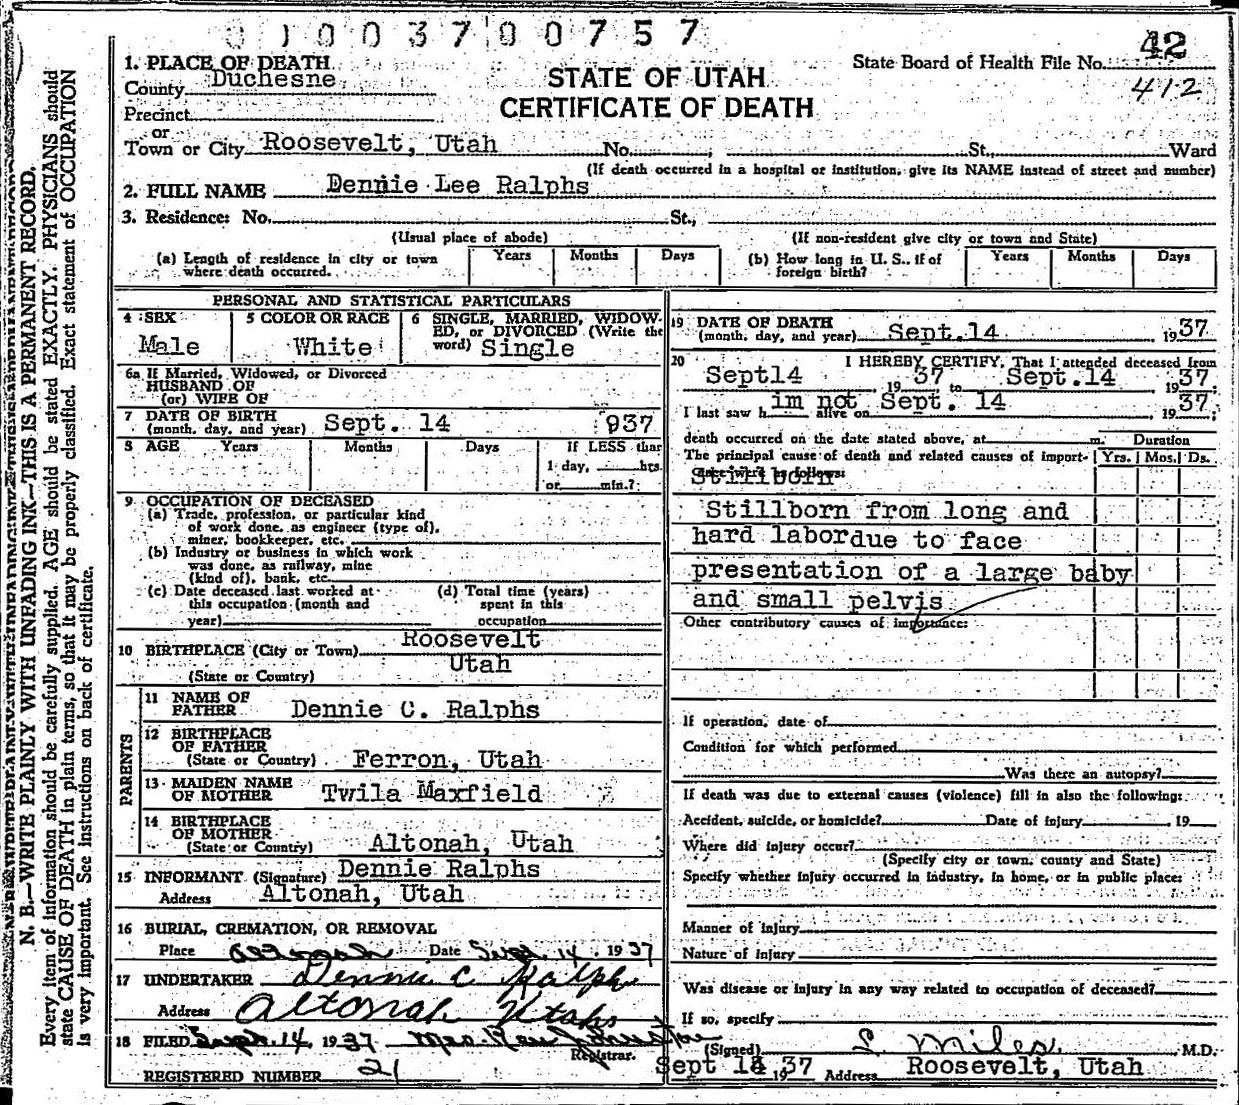 01003700757
42
State Board of Health File No.
412
STATE OF UTAH
CERTIFICATE OF DEATH
1. PLACE OF DEATH
County Duchesne
Precinct
or
Town or City Roosevelt, Utah No. , St., Ward
(If death occurred in a hospital or institution, give its NAME instead of street and number)
2. FULL NAME Dennie Lee Ralphs
3. Residence: No. St.,
(Usual place of abode) (If non-resident give city or town and State)
(a) Length of residence in city or town where death occurred. Years Months Days (b) How long in U. S., if of foreign birth? Years Months Days
PERSONAL AND STATISTICAL PARTICULARS
4 SEX Male
5 COLOR OR RACE White
6 SINGLE, MARRIED, WIDOW-
ED, or DIVORCED (Write the
word) Single
6a If Married, Widowed, or Divorced
HUSBAND OF
(or) WIFE OF
7 DATE OF BIRTH
(month, day, and year) Sept. 14 937
8 AGE Years Months Days If LESS than
1 day, hrs.
or min.?
9 OCCUPATION OF DECEASED
(a) Trade, profession, or particular kind
of work done, as engineer (type of),
miner, bookkeeper, etc.
(b) Industry or business in which work
was done, as railway, mine
(kind of), bank, etc.
(c) Date deceased last worked at
this occupation (month and
year)
(d) Total time (years)
spent in this
occupation
10 BIRTHPLACE (City or Town) Roosevelt
(State or Country) Utah
PARENTS
11 NAME OF
FATHER Dennie C. Ralphs
12 BIRTHPLACE
OF FATHER
(State or Country) Ferron, Utah
13 MAIDEN NAME
OF MOTHER Twila Maxfield
14 BIRTHPLACE
OF MOTHER
(State or Country) Altonah, Utah
15 INFORMANT (Signature) Dennie Ralphs
Address Altonah, Utah
16 BURIAL, CREMATION, OR REMOVAL
Place Altonah Date Sept. 14, 1937
17 UNDERTAKER Dennie C Ralphs
Address Altonah Utah
18 FILED Sept. 14, 1937 Mrs.
Registrar.
REGISTERED NUMBER 21
19 DATE OF DEATH
(month, day, and year) Sept.14 1937
20 I HEREBY CERTIFY, That I attended deceased from
Sept14, 1937 to Sept.14 1937;
I last saw h im not alive on Sept. 14, 1937;
death occurred on the date stated above, at m. Duration
The principal cause of death and related causes of import- Yrs. Mos. Ds.
ance were as follows:
Stillborn
Stillborn from long and
hard labor due to face
presentation of a large baby
and small pelvis
Other contributory causes of importance:
If operation, date of
Condition for which performed
Was there an autopsy?
If death was due to external causes (violence) fill in also the following:
Accident, suicide, or homicide? Date of injury , 19
Where did injury occur?
(Specify city or town, county and State)
Specify whether injury occurred in industry, in home, or in public place:
Manner of Injury
Nature of Injury
Was disease or injury in any way related to occupation of deceased?
If so, specify
(Signed) L. Miles M.D.
Sept 1937 Address Roosevelt, Utah
N. B.—WRITE PLAINLY WITH UNFADING INK—THIS IS A PERMANENT RECORD.
Every item of information should be carefully supplied. AGE should be stated EXACTLY. PHYSICIANS should
state CAUSE OF DEATH in plain terms, so that it may be properly classified. Exact statement of OCCUPATION
is very important. See instructions on back of certificate.